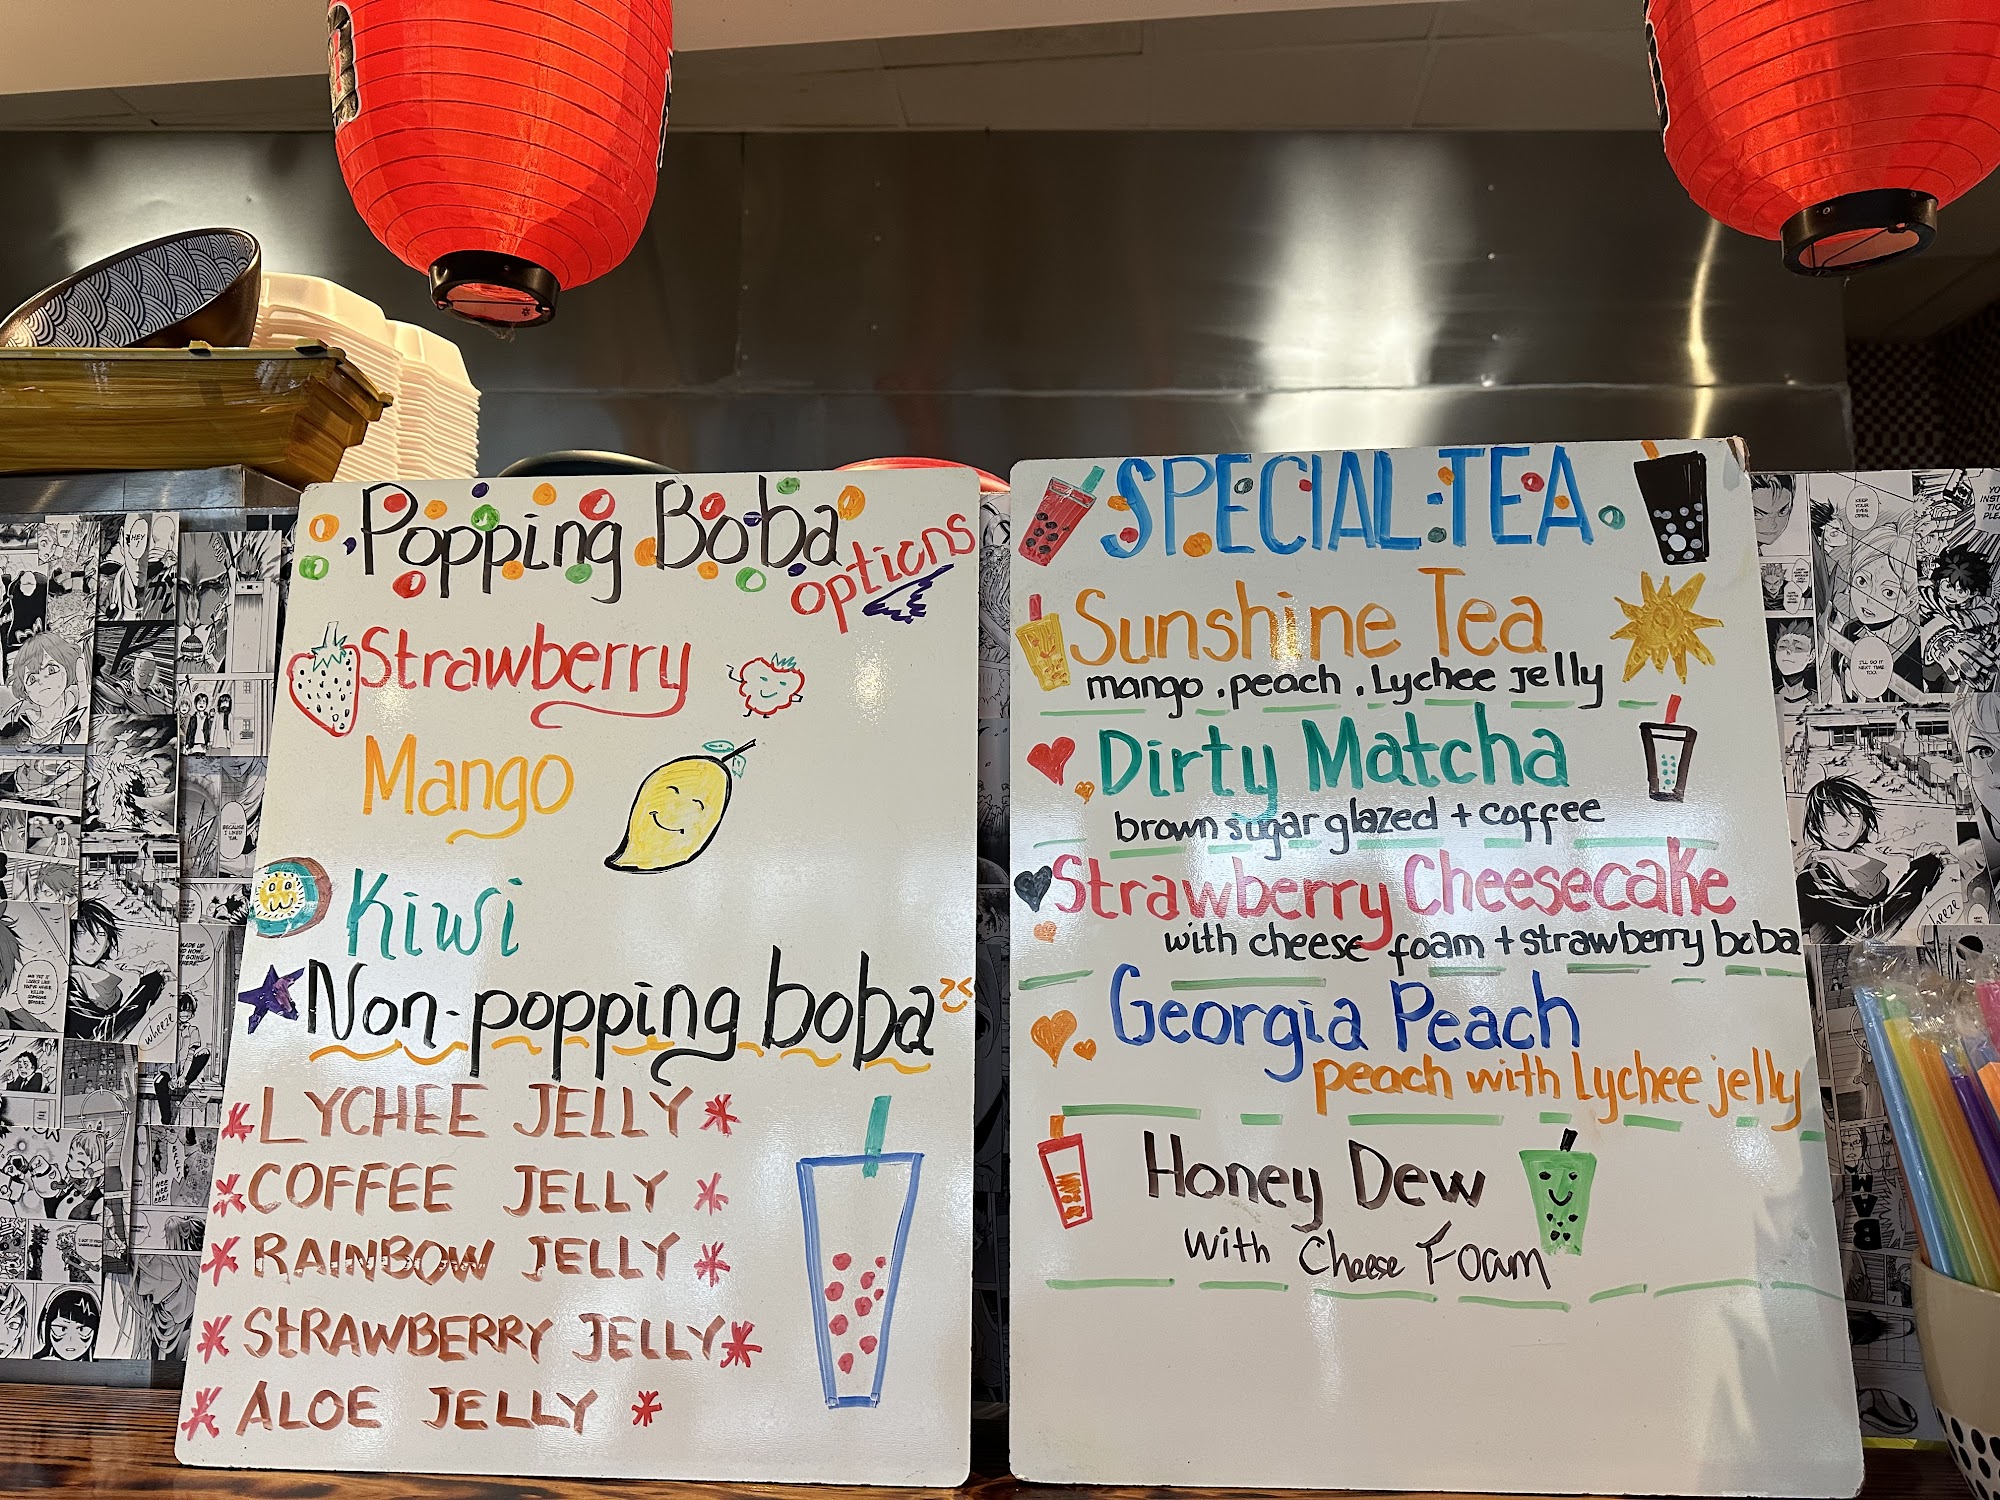 Popping Boba
options
Strawberry
Mango
Kiwi
Non-popping boba
LYCHEE JELLY
COFFEE JELLY
RAINBOW JELLY
STRAWBERRY JELLY
ALOE JELLY
SPECIAL TEA
Sunshine Tea
mango, peach, Lychee Jelly
Dirty Matcha
brown sugar glazed + coffee
Strawberry Cheesecake
with cheese foam + strawberry boba
Georgia Peach
peach with Lychee jelly
Honey Dew
with Cheese Foam
HEY!
BECAUSE
I LIKED
'EM.
wheeze
KEEP
YOUR
EYES
OPEN.
I'LL DO IT
NEXT TIME
TOO.
BAM